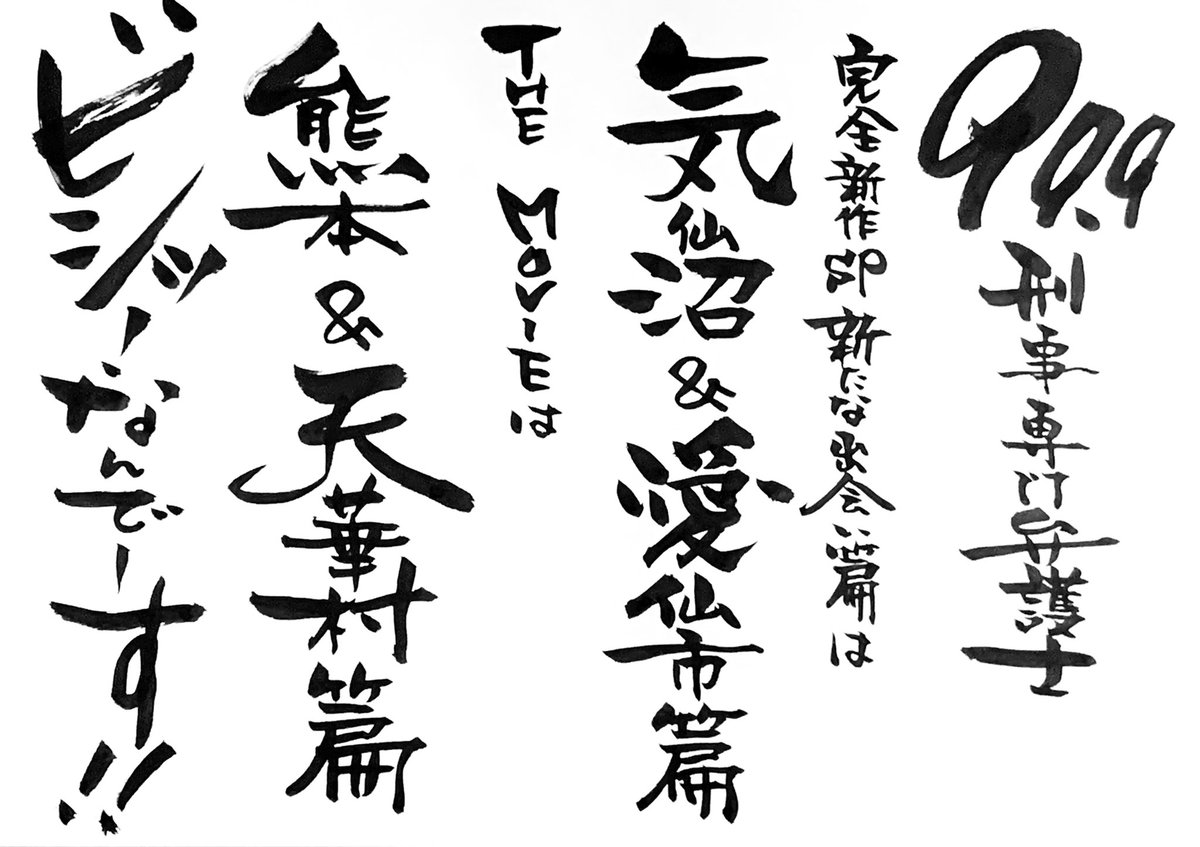 99.9
刑事専門弁護士
完全新作SP新たな出会い篇は
気仙沼&愛仙市篇
THE MOVIEは
熊本&天華村篇
ビジッーなんでーす!!